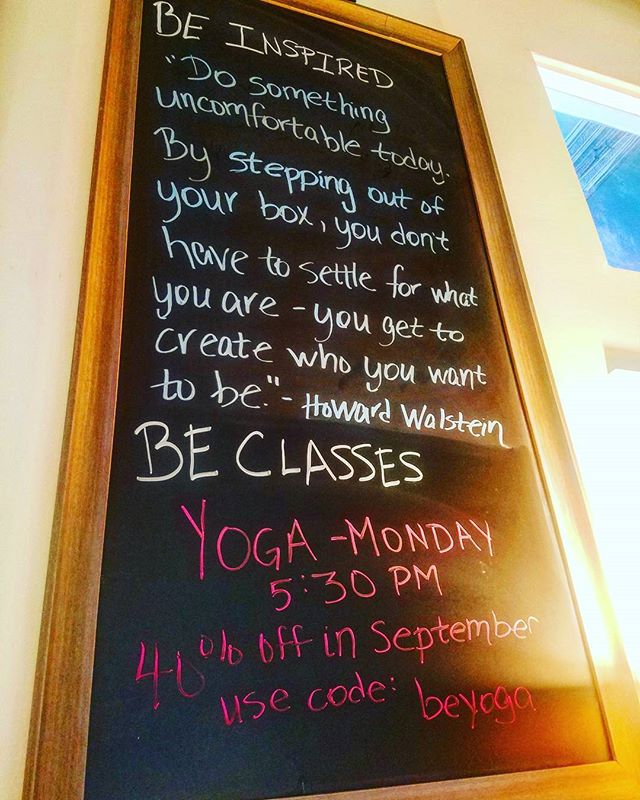 BE INSPIRED
"Do something
uncomfortable today.
By stepping out of
your box, you don't
have to settle for what
you are - you get to
create who you want
to be." - Howard Walstein
BE CLASSES
YOGA - MONDAY
5:30 PM
40% off in September
use code: beyoga